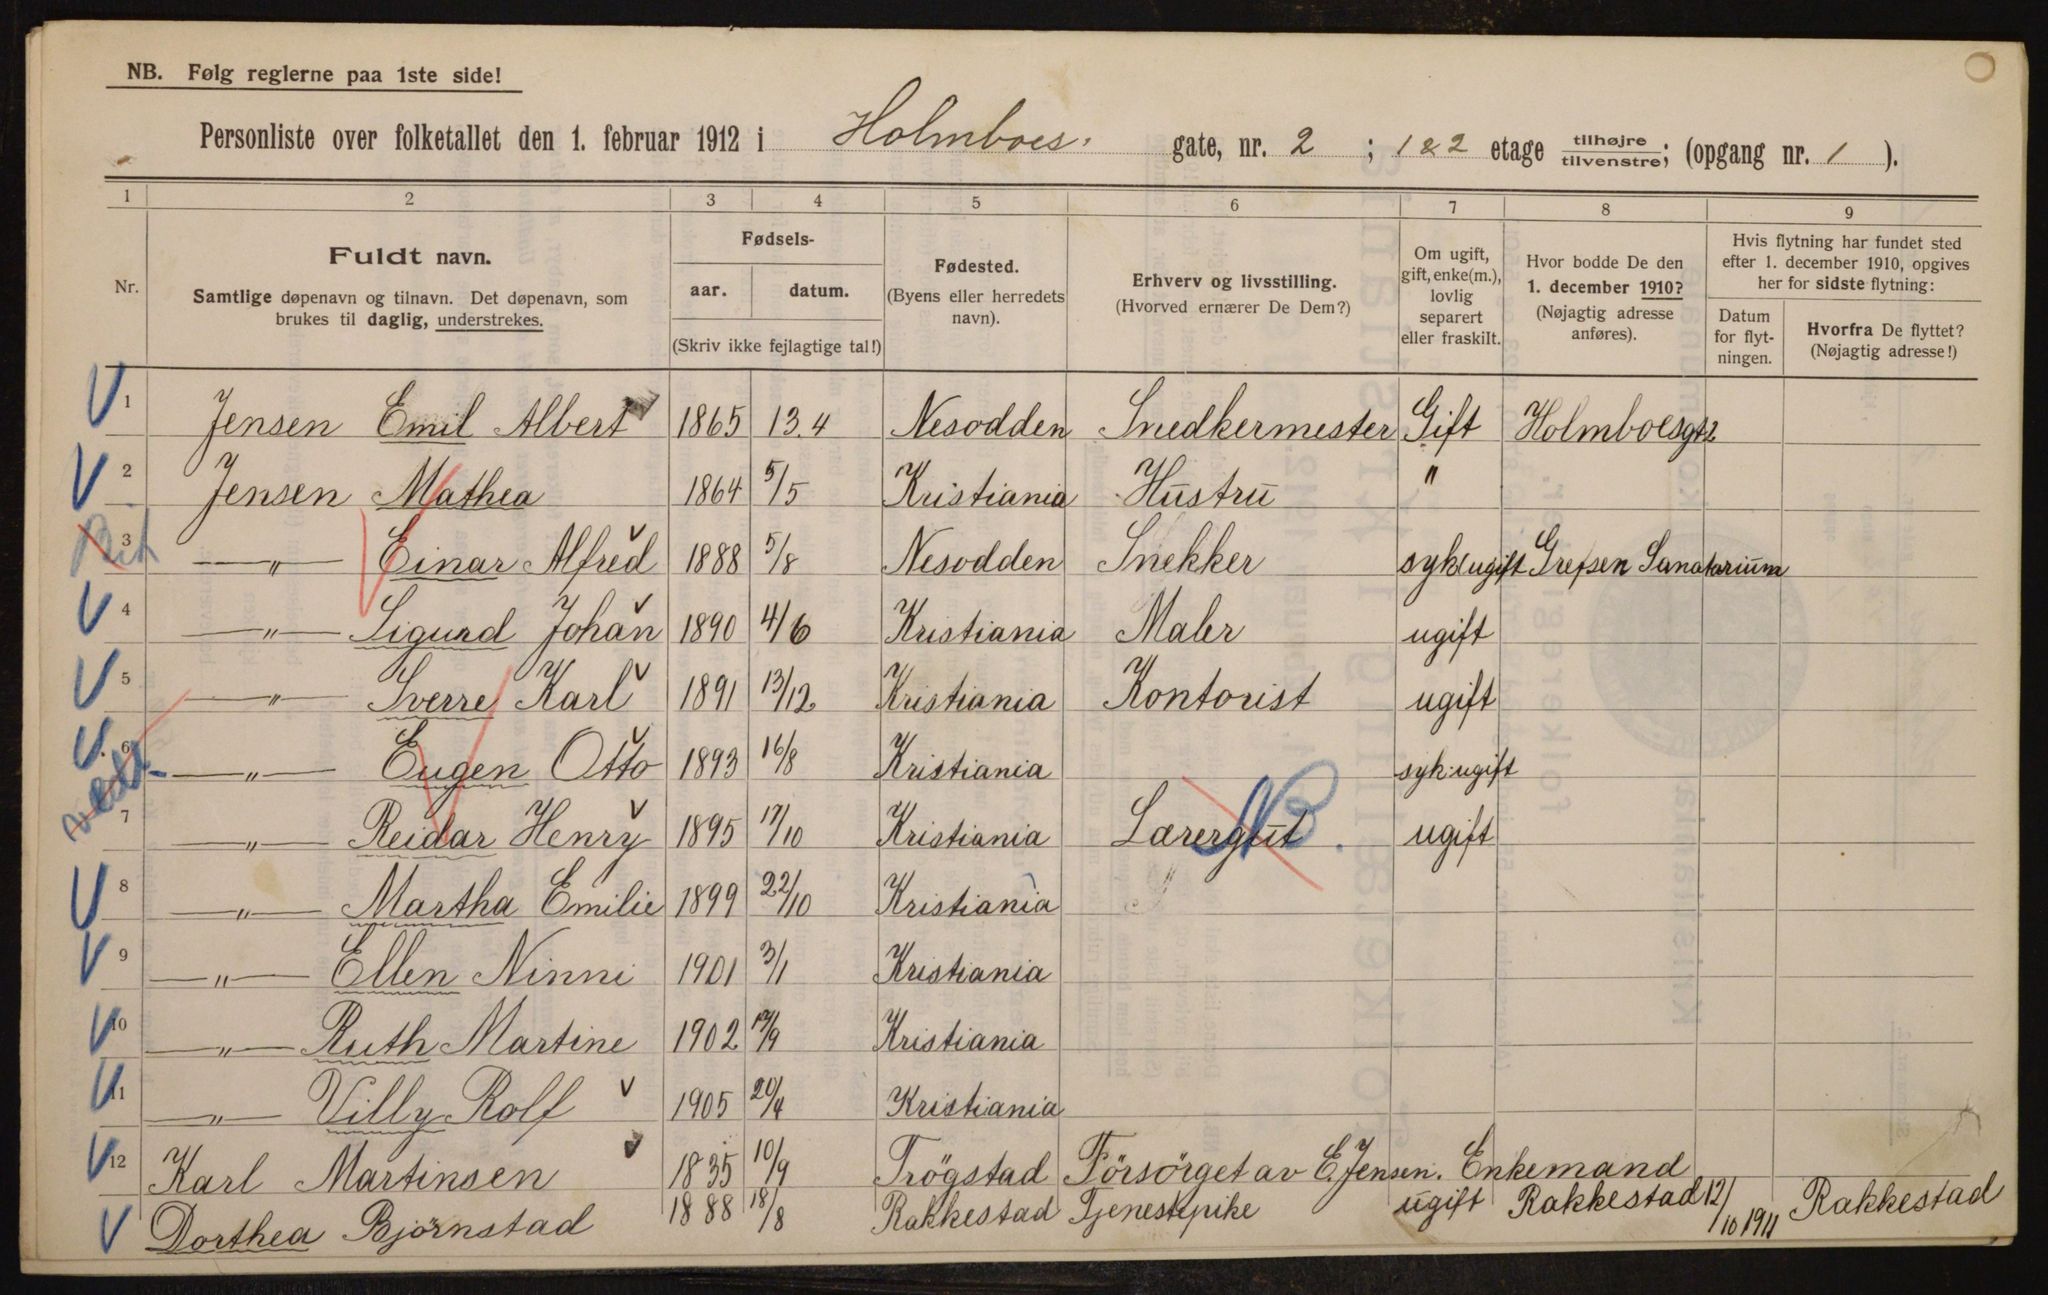 NB. Følg reglerne paa 1ste side!
Personliste over folketallet den 1. februar 1912 i Holmboes. gate, nr. 2 ; 1 & 2 etage tilhøjre/tilvenstre; (opgang nr. 1 ).
1 2 3 4 5 6 7 8 9
Nr.
Fuldt navn.
Samtlige døpenavn og tilnavn. Det døpenavn, som
brukes til daglig, understrekes.
Fødsels-
aar. datum.
(Skriv ikke fejlagtige tal!)
Fødested.
(Byens eller herredets
navn).
Erhverv og livsstilling.
(Hvorved ernærer De Dem?)
Om ugift,
gift, enke(m.),
lovlig
separert
eller fraskilt.
Hvor bodde De den
1. december 1910?
(Nøjagtig adresse
anføres).
Hvis flytning har fundet sted
efter 1. december 1910, opgives
her for sidste flytning:
Datum
for flyt-
ningen.
Hvorfra De flyttet?
(Nøjagtig adresse!)
1 Jensen Emil Albert 1865 13.4 Nesodden Snedkermester Gift Holmboesgt 2
2 Jensen Mathea 1864 5/5 Kristiania Hustru "
3 —"— Einar Alfred 1888 5/8 Nesodden Snekker syk ugift Grefsen Sanatorium
4 —"— Sigurd Johan 1890 4/6 Kristiania Maler ugift
5 —"— Sverre Karl 1891 13/12 Kristiania Kontorist ugift
6 —"— Eugen Otto 1893 16/8 Kristiania syk. ugift
7 —"— Reidar Henry 1895 17/10 Kristiania Lærergut NB. ugift
8 —"— Martha Emilie 1899 22/10 Kristiania
9 —"— Ellen Ninni 1901 3/1 Kristiania
10 —"— Ruth Martine 1902 17/9 Kristiania
11 —"— Villy Rolf 1905 20/4 Kristiania
12 Karl Martinsen 1835 10/9 Trögstad Försörget av E. Jensen. Enkemand
Dorthea Bjørnstad 1888 18/8 Rakkestad Tjenestepike ugift Rakkestad 12/10 1911 Rakkestad